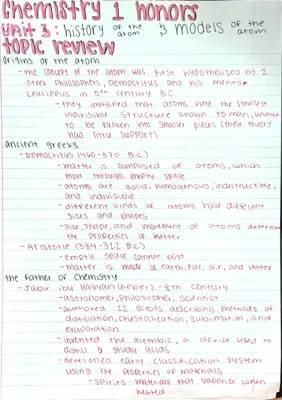 chemistry 1 honors
unit 3: history of the atom 3 models of the atom
topic review
origins of the atom
- the concept of the atom was first hypothesized by 2
Greek philosophers, Democritus and his mentor
Leucippus in 5th century B.C.
- they imagined that atoms were the smallest
indivisible structure known to man, unable
to be broken into smaller pieces (their theory
had little support)
ancient greeks
- Democritus (460-370 B.C.)
- matter is composed of atoms, which
move through empty space
- atoms are solid, homogenous, indestructible,
and indivisible
- different kinds of atoms have different
sizes and shapes
- size, shape, and movement of atoms determine
the properties of matter
- Aristotle (384-322 B.C.)
- empty space cannot exist
- matter is made of earth, fire, air, and water
the father of chemistry
- Jabir ibn Hayyan (Geber): 8th century
- astronomer, philosopher, scientist
- authored 22 scrolls describing methods of
distillation, crystalization, sublimation, and
evaporation
- invented the alembic, a device used to
distill & study acids
- developed early classification system
using the properties of materials
- spirits: materials that vaporize when
heated